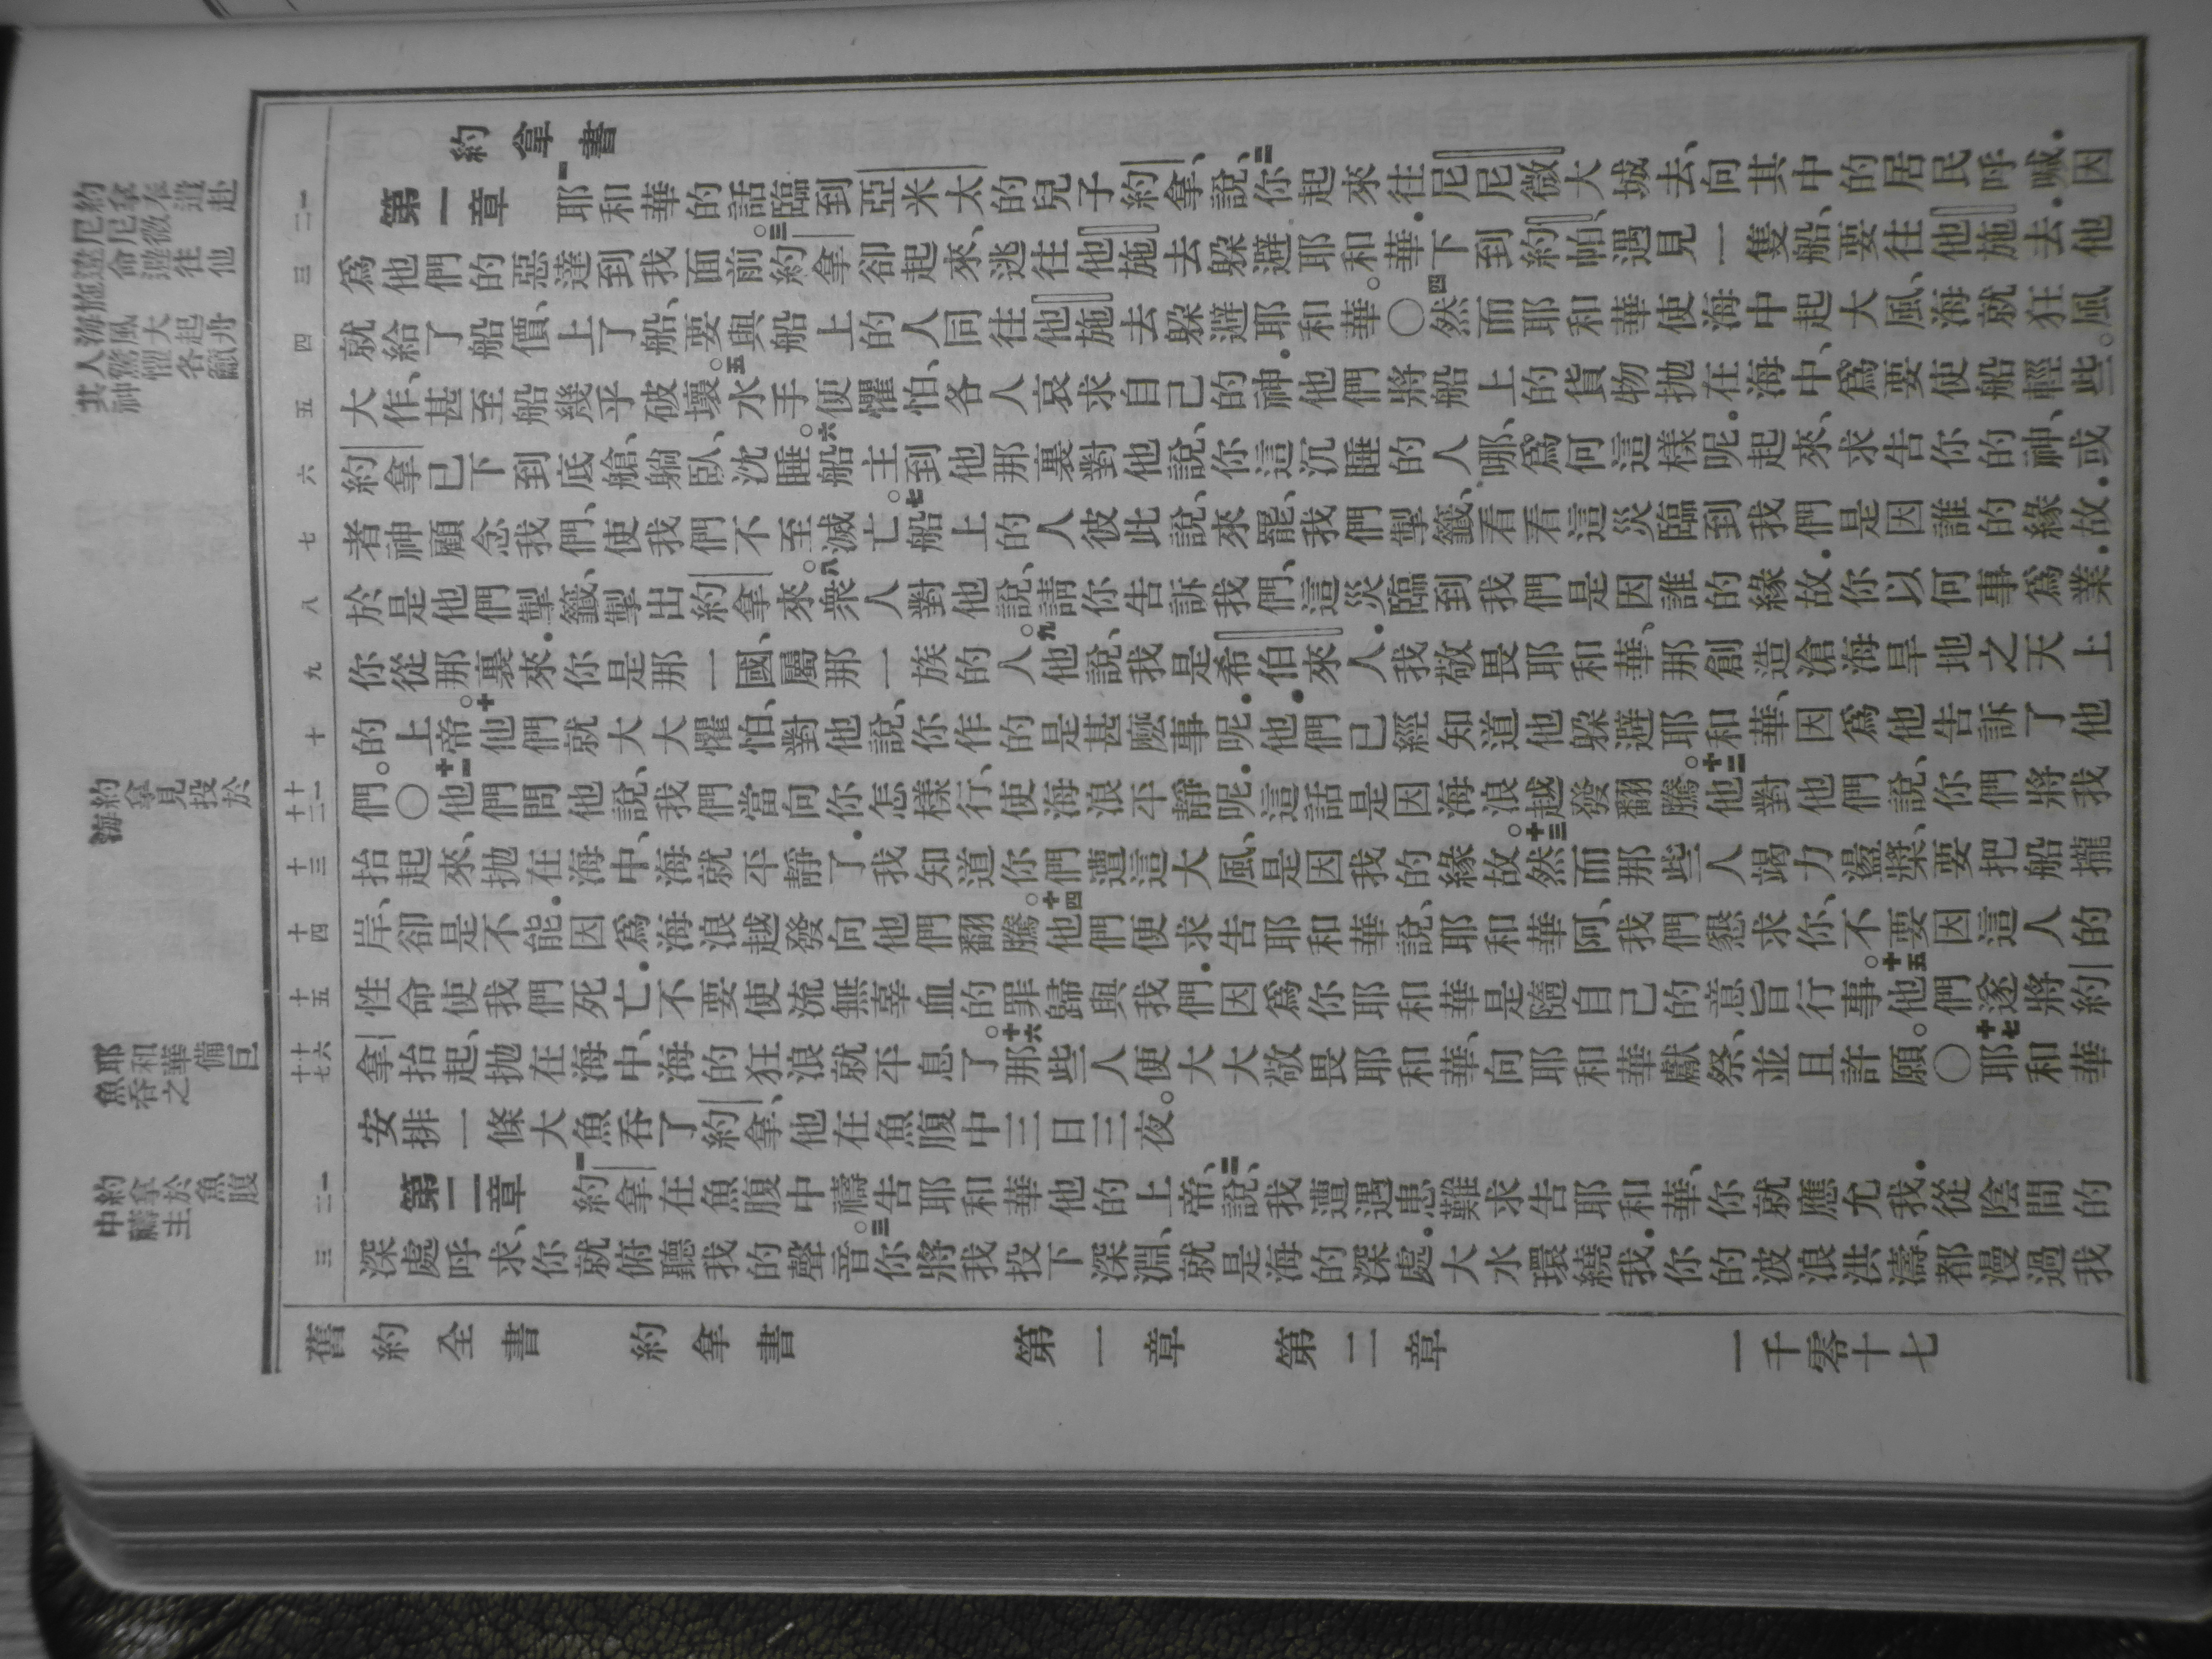 約拿書
第一章 一耶和華的話臨到亞米太的兒子約拿、說、二你起來往尼尼微大城去、向其中的居民呼喊．因
爲他們的惡達到我面前。三約拿卻起來、逃往他施去躲避耶和華．下到約帕、遇見一隻船、要往他施去．他
就給了船價、上了船、要與船上的人同往他施去躲避耶和華。〇四然而耶和華使海中起大風、海就狂風
大作、甚至船幾乎破壞。五水手便懼怕、各人哀求自己的神．他們將船上的貨物拋在海中、爲要使船輕些。
約拿已下到底艙、躺臥、沈睡。六船主到他那裏對他說、你這沉睡的人哪、爲何這樣呢．起來、求告你的神、或
者神顧念我們、使我們不至滅亡。七船上的人彼此說、來罷、我們掣籤、看看這災臨到我們．是因誰的緣故．
於是他們掣籤、掣出約拿來。八衆人對他說、請你告訴我們、這災臨到我們是因誰的緣故．你以何事爲業．
你從那裏來．你是那一國、屬那一族的人。九他說、我是希伯來人．我敬畏耶和華、那創造滄海旱地之天上
的上帝。十他們就大大懼怕、對他說、你作的是甚麼事呢．他們已經知道他躲避耶和華、因爲他告訴了他
們。〇十一他們問他說、我們當向你怎樣行、使海浪平靜呢．這話是因海浪越發翻騰。十二他對他們說、你們將我
抬起來、拋在海中、海就平靜了．我知道你們遭這大風、是因我的緣故。十三然而那些人竭力盪槳、要把船攏
岸、卻是不能．因爲海浪越發向他們翻騰。十四他們便求告耶和華說、耶和華阿、我們懇求你、不要因這人的
性命使我們死亡．不要使流無辜血的罪歸與我們．因爲你耶和華是隨自己的意旨行事。十五他們遂將約
拿抬起、拋在海中、海的狂浪就平息了。十六那些人便大大敬畏耶和華、向耶和華獻祭、並且許願。〇十七耶和華
安排一條大魚吞了約拿、他在魚腹中三日三夜。
第二章 一約拿在魚腹中禱告耶和華他的上帝、二說、我遭遇患難求告耶和華、你就應允我．從陰間的
深處呼求、你就俯聽我的聲音。三你將我投下深淵、就是海的深處．大水環繞我．你的波浪洪濤、都漫過我
一
二
三
四
五
六
七
八
九
十
十一
十二
十三
十四
十五
十六
十七
一
二
三
約拿奉
海風大起
其人驚懼各
約拿見投於
海
耶和華備巨
魚吞之
約拿於魚腹
中禱主
舊約全書 約拿書 第一章 第二章 一千零十七